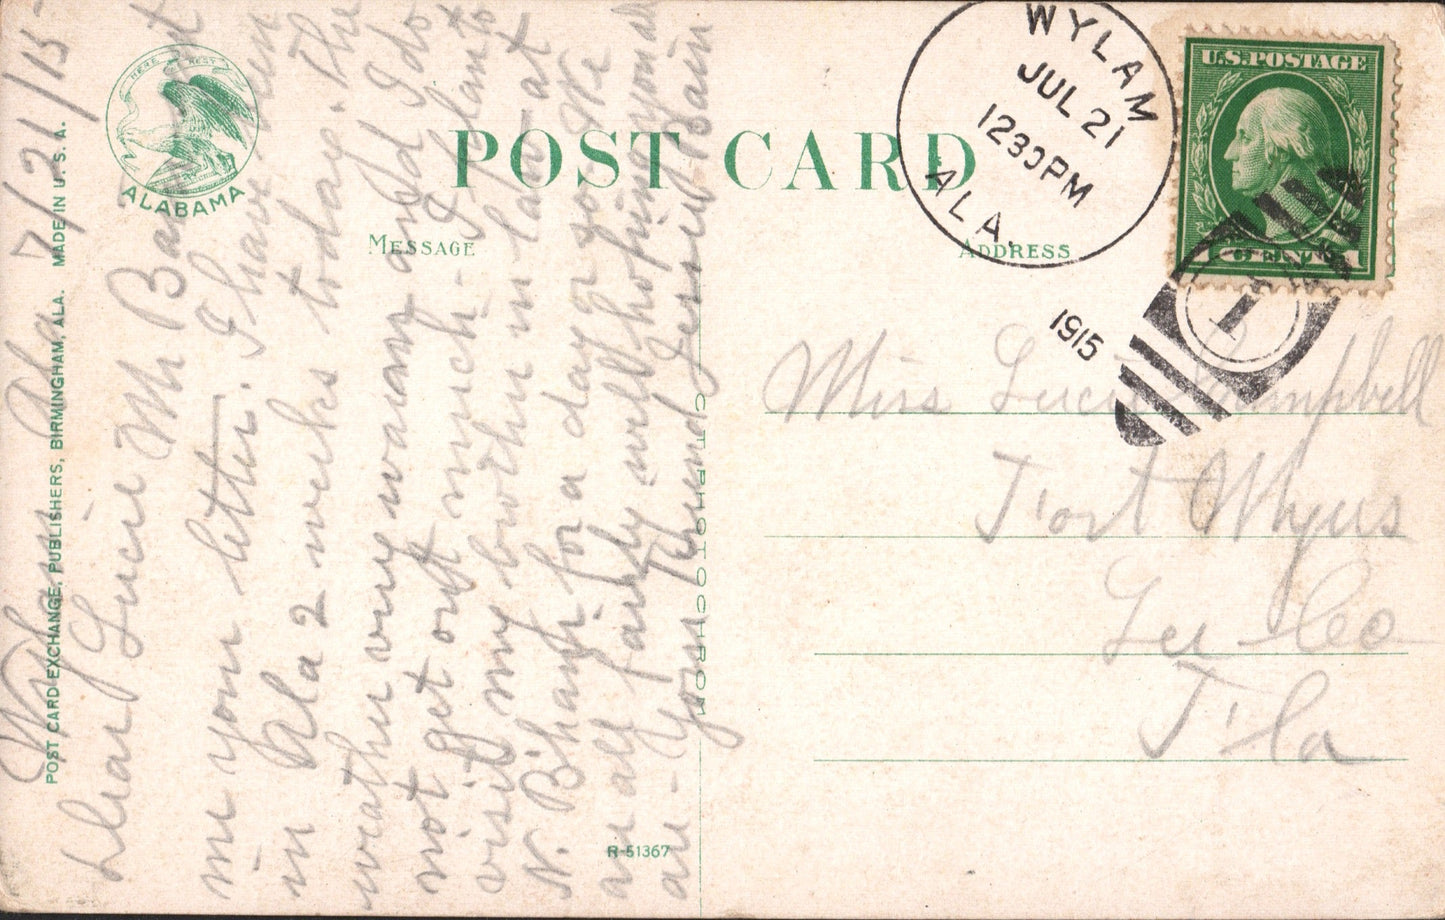 HERE REST
ALABAMA
POST CARD
MESSAGE
ADDRESS
POST CARD EXCHANGE, PUBLISHERS, BIRMINGHAM, ALA. MADE IN U. S. A.
OCTPHOTOCHROM
R-51367
WYLAM
JUL 21
1230PM
ALA.
1915
U.S. POSTAGE
1
Wylam Ala 7/21/15
Dear Lucie Mr Ba
me your letter. I have been
in Ala 2 weeks today. The
weather very warm and I do
not get out much - I plan to
visit my brother in law at
N. B'ham for a day or so. We
are all fairly well hoping you all
are - Your Friend Jessie Bain
Miss Lucie Campbell
Fort Myers
Lee Co
Fla